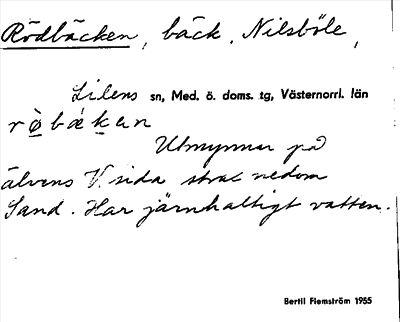 Rödbäcken, bäck, Nilsböle,
Lidens sn, Med. ö. doms. tg, Västernorrl. län
röbäkan
Utmynnar på
älvens V. sida strax nedom
Sand. Har järnhaltigt vatten.
Bertil Flemström 1955